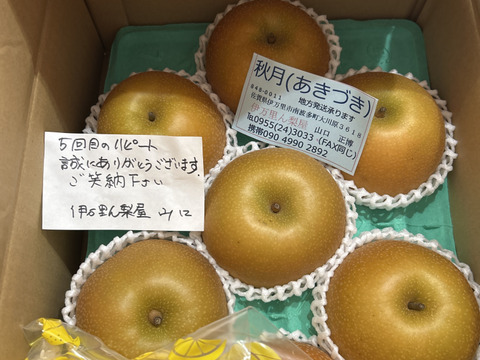 秋月(あきづき)
地方発送承ります
848-0011
佐賀県伊万里市南波多町大川原3618
伊万里ん梨屋 山口 正博
℡0955(24)3033(FAX同じ)
携帯090 4990 2892
5回目のリピート
誠にありがとうございます。
ご笑納下さい
伊万里ん梨屋 山口